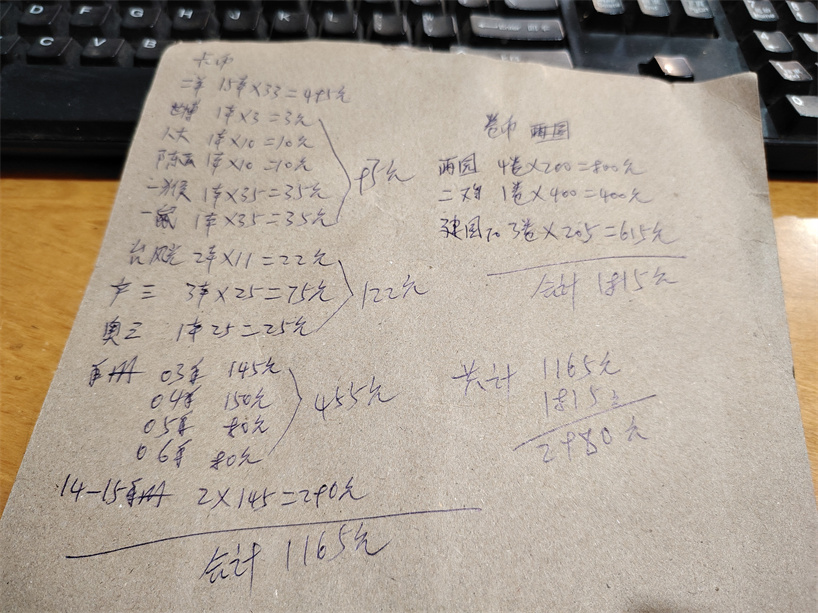 卡币
二羊 15本×33=495元
世博 1本×3=3元
人大 1本×10=10元
陈云 1本×10=10元
一猴 1本×35=35元
一鼠 1本×35=35元
93元
台风光 2本×11=22元
卢三 3本×25=75元
奥三 1本25=25元
122元
年册 03年 145元
04年 150元
05年 80元
06年 80元
455元
14-15年册 2×145=290元
合计 1165元
卷币 两园
两园 4卷×200=800元
二鸡 1卷×400=400元
建国70 3卷×205=615元
合计 1815元
共计 1165元
1815元
2980元